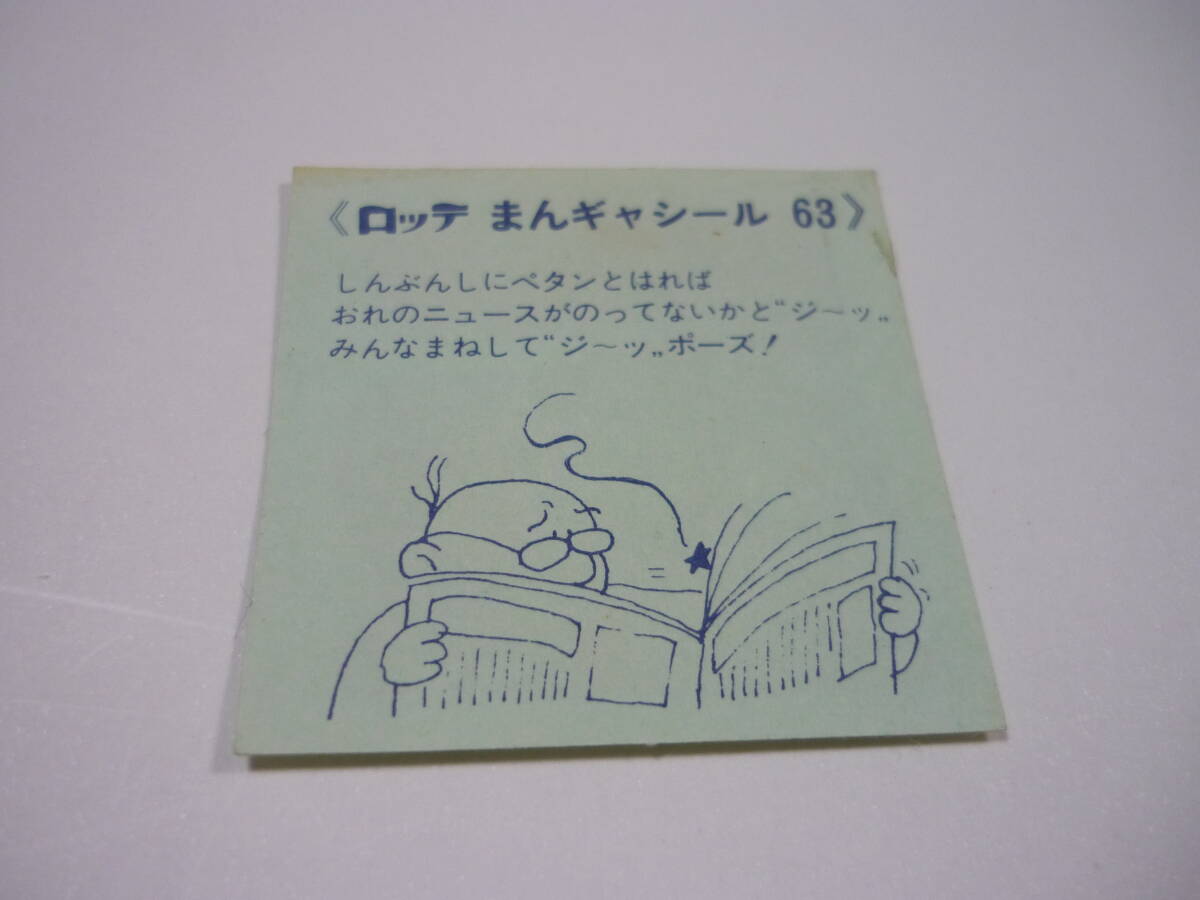 《ロッテ まんギャシール 63》
しんぶんしにペタンとはれば
おれのニュースがのってないかと“ジ〜ッ„
みんなまねして“ジ〜ッ„ポーズ!